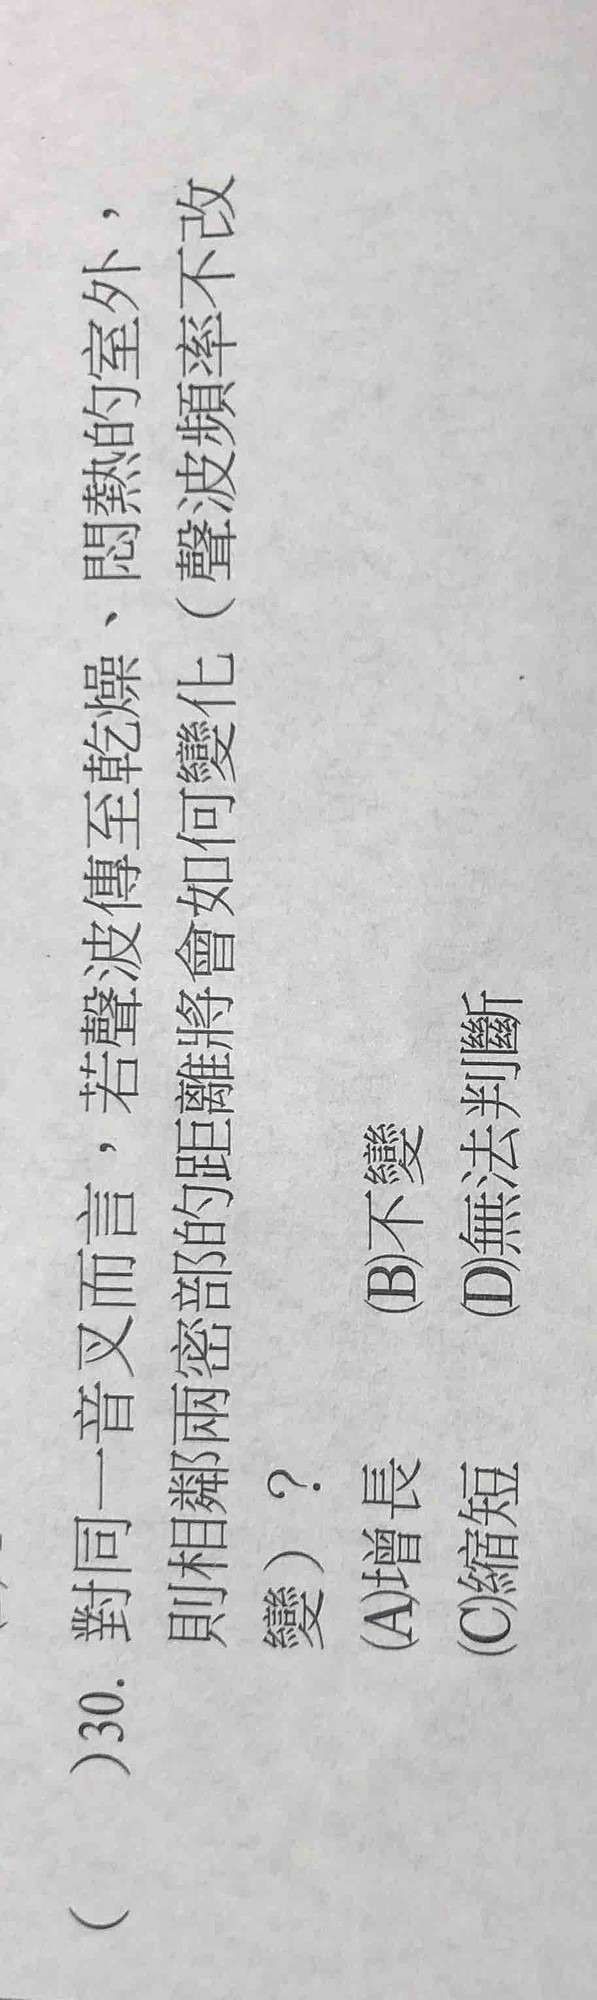 (　　)30. 對同一音叉而言，若聲波傳至乾燥、悶熱的室外，
則相鄰兩密部的距離將會如何變化（聲波頻率不改
變）？
(A)增長　(B)不變
(C)縮短　(D)無法判斷